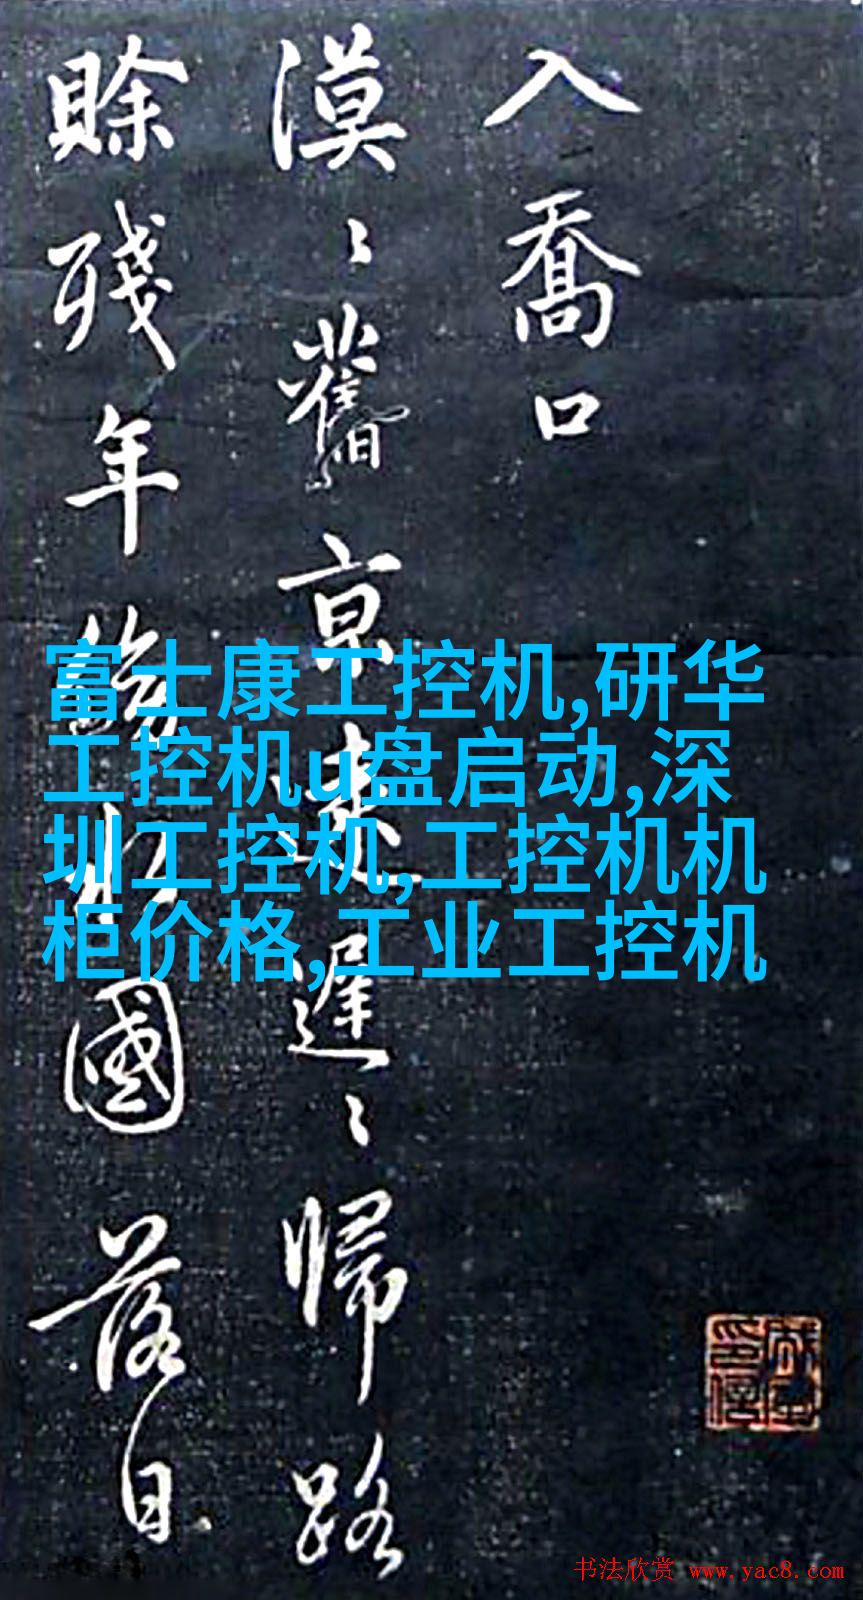 入喬口
漠〻舊京遠遲〻歸路
賖殘年傍水國落日
富士康工控机,研华
工控机u盘启动,深
圳工控机,工控机机
柜价格,工业工控机
书法欣赏 www.yac8.com